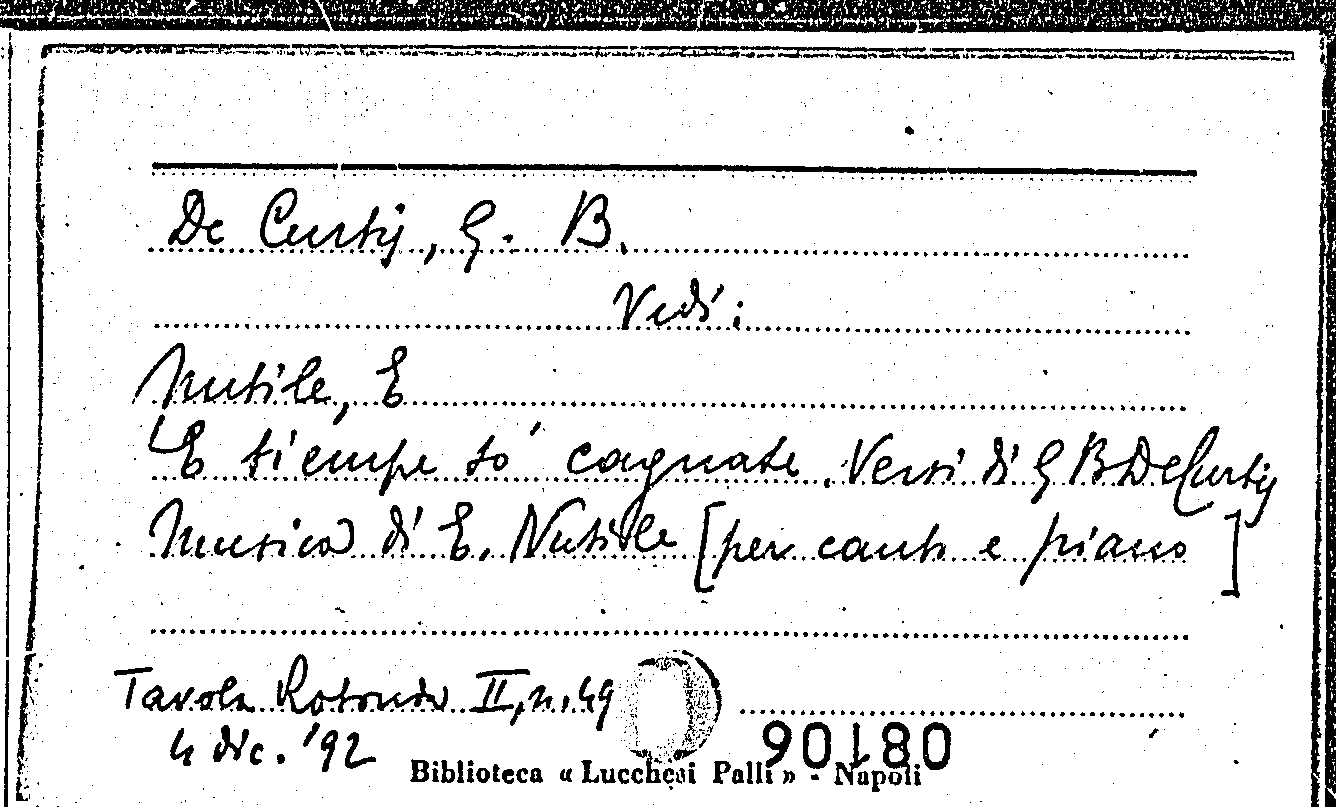 De Curtis, G. B.
Vedi:
Nutile, E
'E tiempe so' cagnate. Versi di G B De Curtis
Musica di E. Nutile [per canto e piano]
Tavola Rotonda II, n. 49
4 dic. '92
90180
Biblioteca « Lucchesi Palli » - Napoli